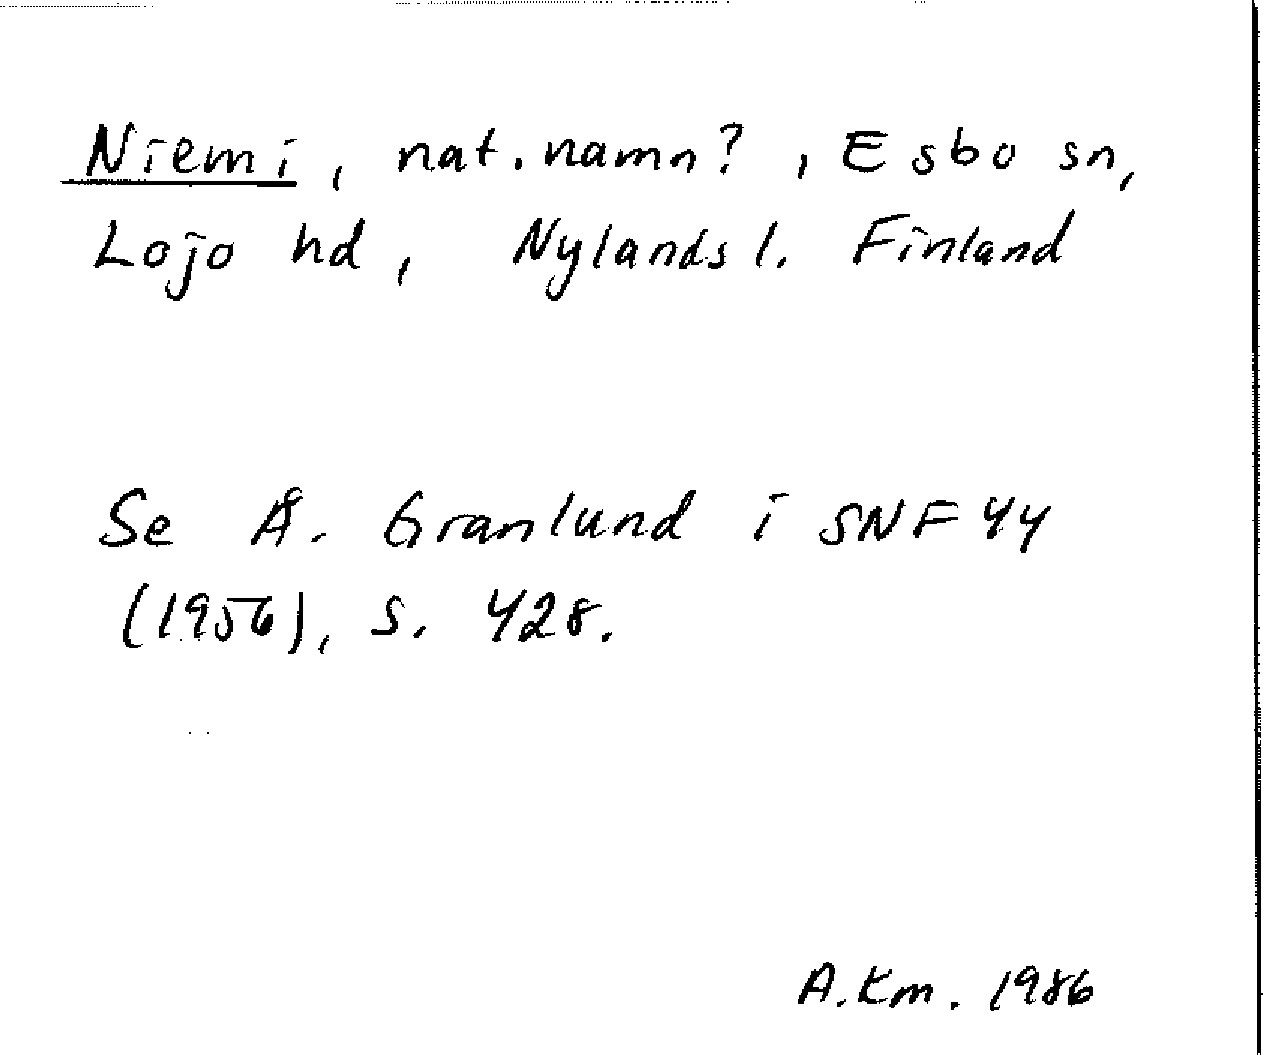 Niemi, nat. namn?, Esbo sn,
Lojo hd, Nylands l. Finland
Se Å. Granlund i SNF 44
(1956), s. 428.
A.Km. 1986